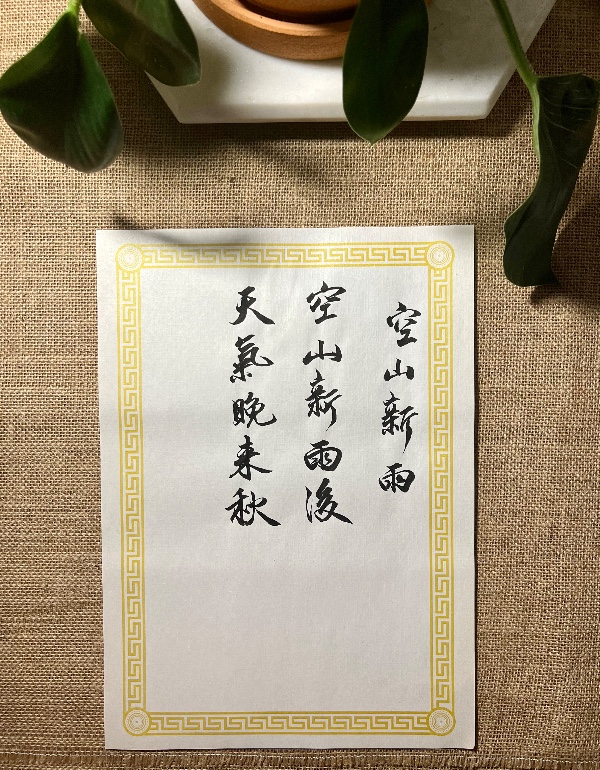 空山新雨
空山新雨後
天氣晚来秋